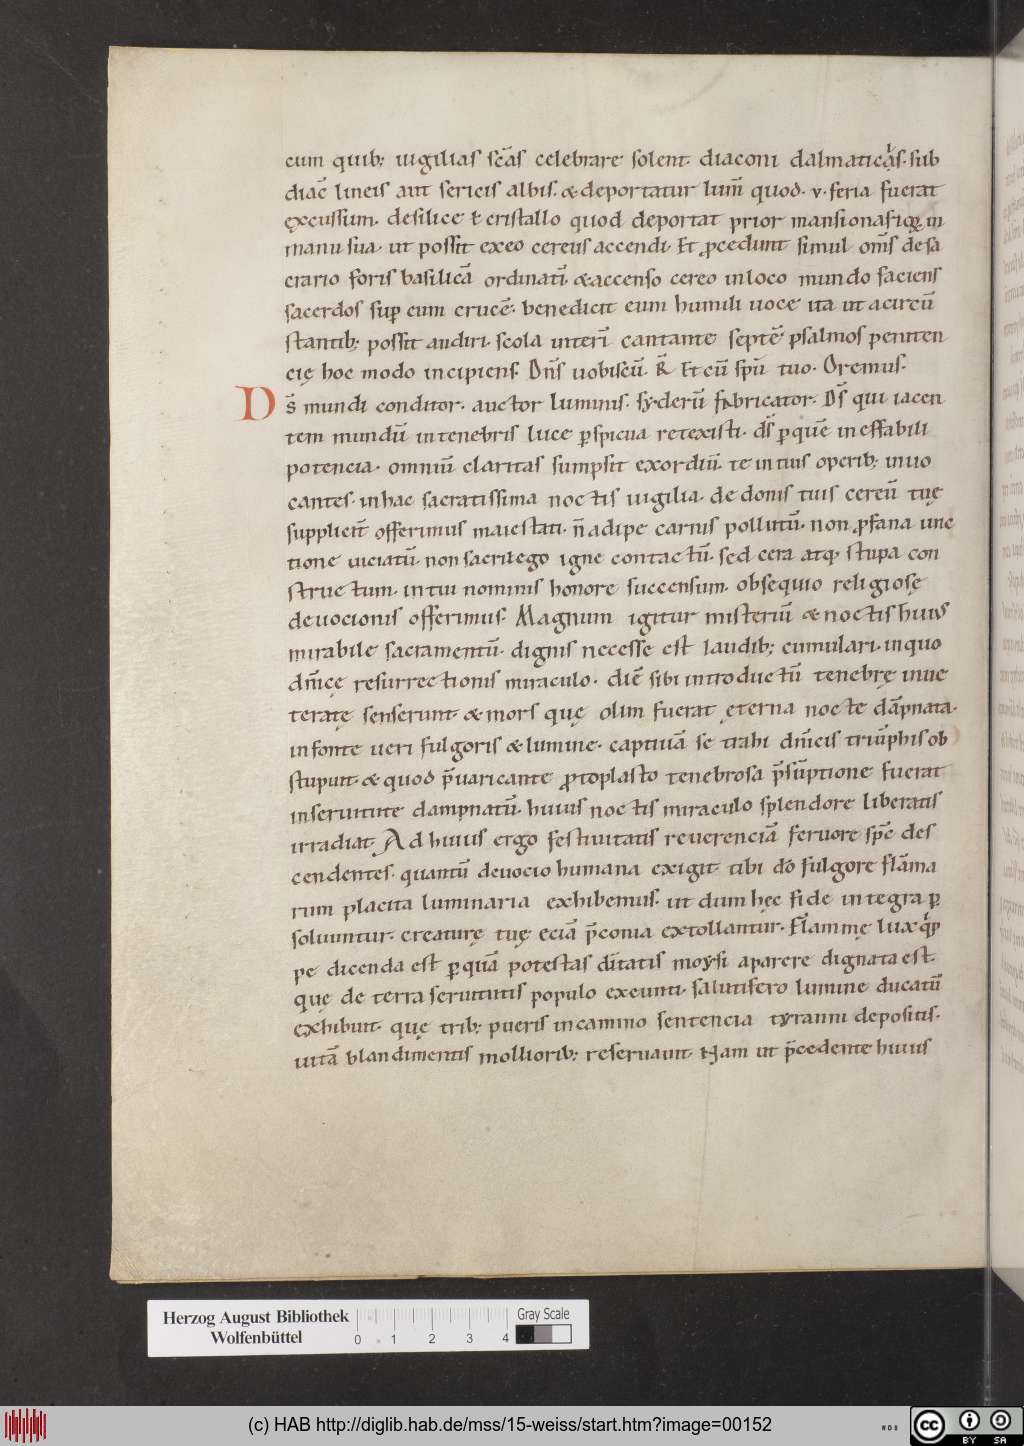 cum quib; uigilias sc̄as celebrare solent. diaconi dalmaticas. sub
diac̄ lineis aut sericis albis. & deportatur lum̄ quod. v. feria fuerat
ęxcussum. de silice ł cristallo quod deportat prior mansionarioꝝ in
manu sua. ut possit ex eo cereus accendi. Et ꝓcedunt simul om̄s de sa
crario foris basilicā ordinati. & accenso cereo in loco mundo faciens
sacerdos suꝑ eum crucē. benedicit eum humili uoce ita ut a circū
stantib; possit audiri. scola interī cantante septē psalmos peniten
cię hoc modo incipiens. Dn̄s uobiscū. R̄ Et cū spū tuo. Oremus.
Ds̄ mundi conditor. auctor luminis. syderū fabricator. Ds̄ qui iacen
tem mundū in tenebris luce ꝑspicua retexisti. ds̄ ꝑ quē ineffabili
potencia. omniū claritas sumpsit exordiū. te in tuis operib; inuo
cantes. in hac sacratissima noctis uigilia. de donis tuis cereū tuę
supplicit̄ offerimus maiestati. n̄ adipe carnis pollutū. non ꝓfana unc
tione uiciatū. non sacrilego igne contactū. sed cera atq; stupa con
structum. in tui nominis honore succensum. obsequio religiosę
deuocionis offerimus. Magnum igitur misteriū & noctis huius
mirabile sacramentū. dignis necesse est laudib; cumulari. in quo
dn̄icę resurrectionis miraculo. diē sibi introductū tenebrę inue
teratę senserunt. & mors quę olim fuerat ęterna nocte dāpnata.
in fonte ueri fulgoris & lumine. captiuā se trahi dn̄icis triūphis ob
stupuit. & quod p̄uaricante ꝓtoplasto tenebrosa p̄sūptione fuerat
in seruitute dampnatū. huius noctis miraculo splendore liberatis
irradiat. Ad huius ergo festiuitatis reuerenciā feruore sp̄c des
cendentes. quantū deuocio humana exigit. tibi dō fulgore flāma
rum placita luminaria exhibemus. ut dum hęc fide integra ꝑ
soluuntur. creaturę tuę eciā p̄conia extollantur. Flammę lux qͥꝑ
pe dicenda est ꝑ quā potestas dītatis moysi aparere dignata est.
quę de terra seruitutis populo exeunti. salutifero lumine ducatū
exhibuit. quę trib; pueris in camino sentencia tyranni depositis.
uitā blandimentis mollioríb; reseruauit. Nam ut p̄cedente huius
Herzog August Bibliothek
Wolfenbüttel
0 1 2 3 4
Gray Scale
(c) HAB http://diglib.hab.de/mss/15-weiss/start.htm?image=00152
cc BY SA